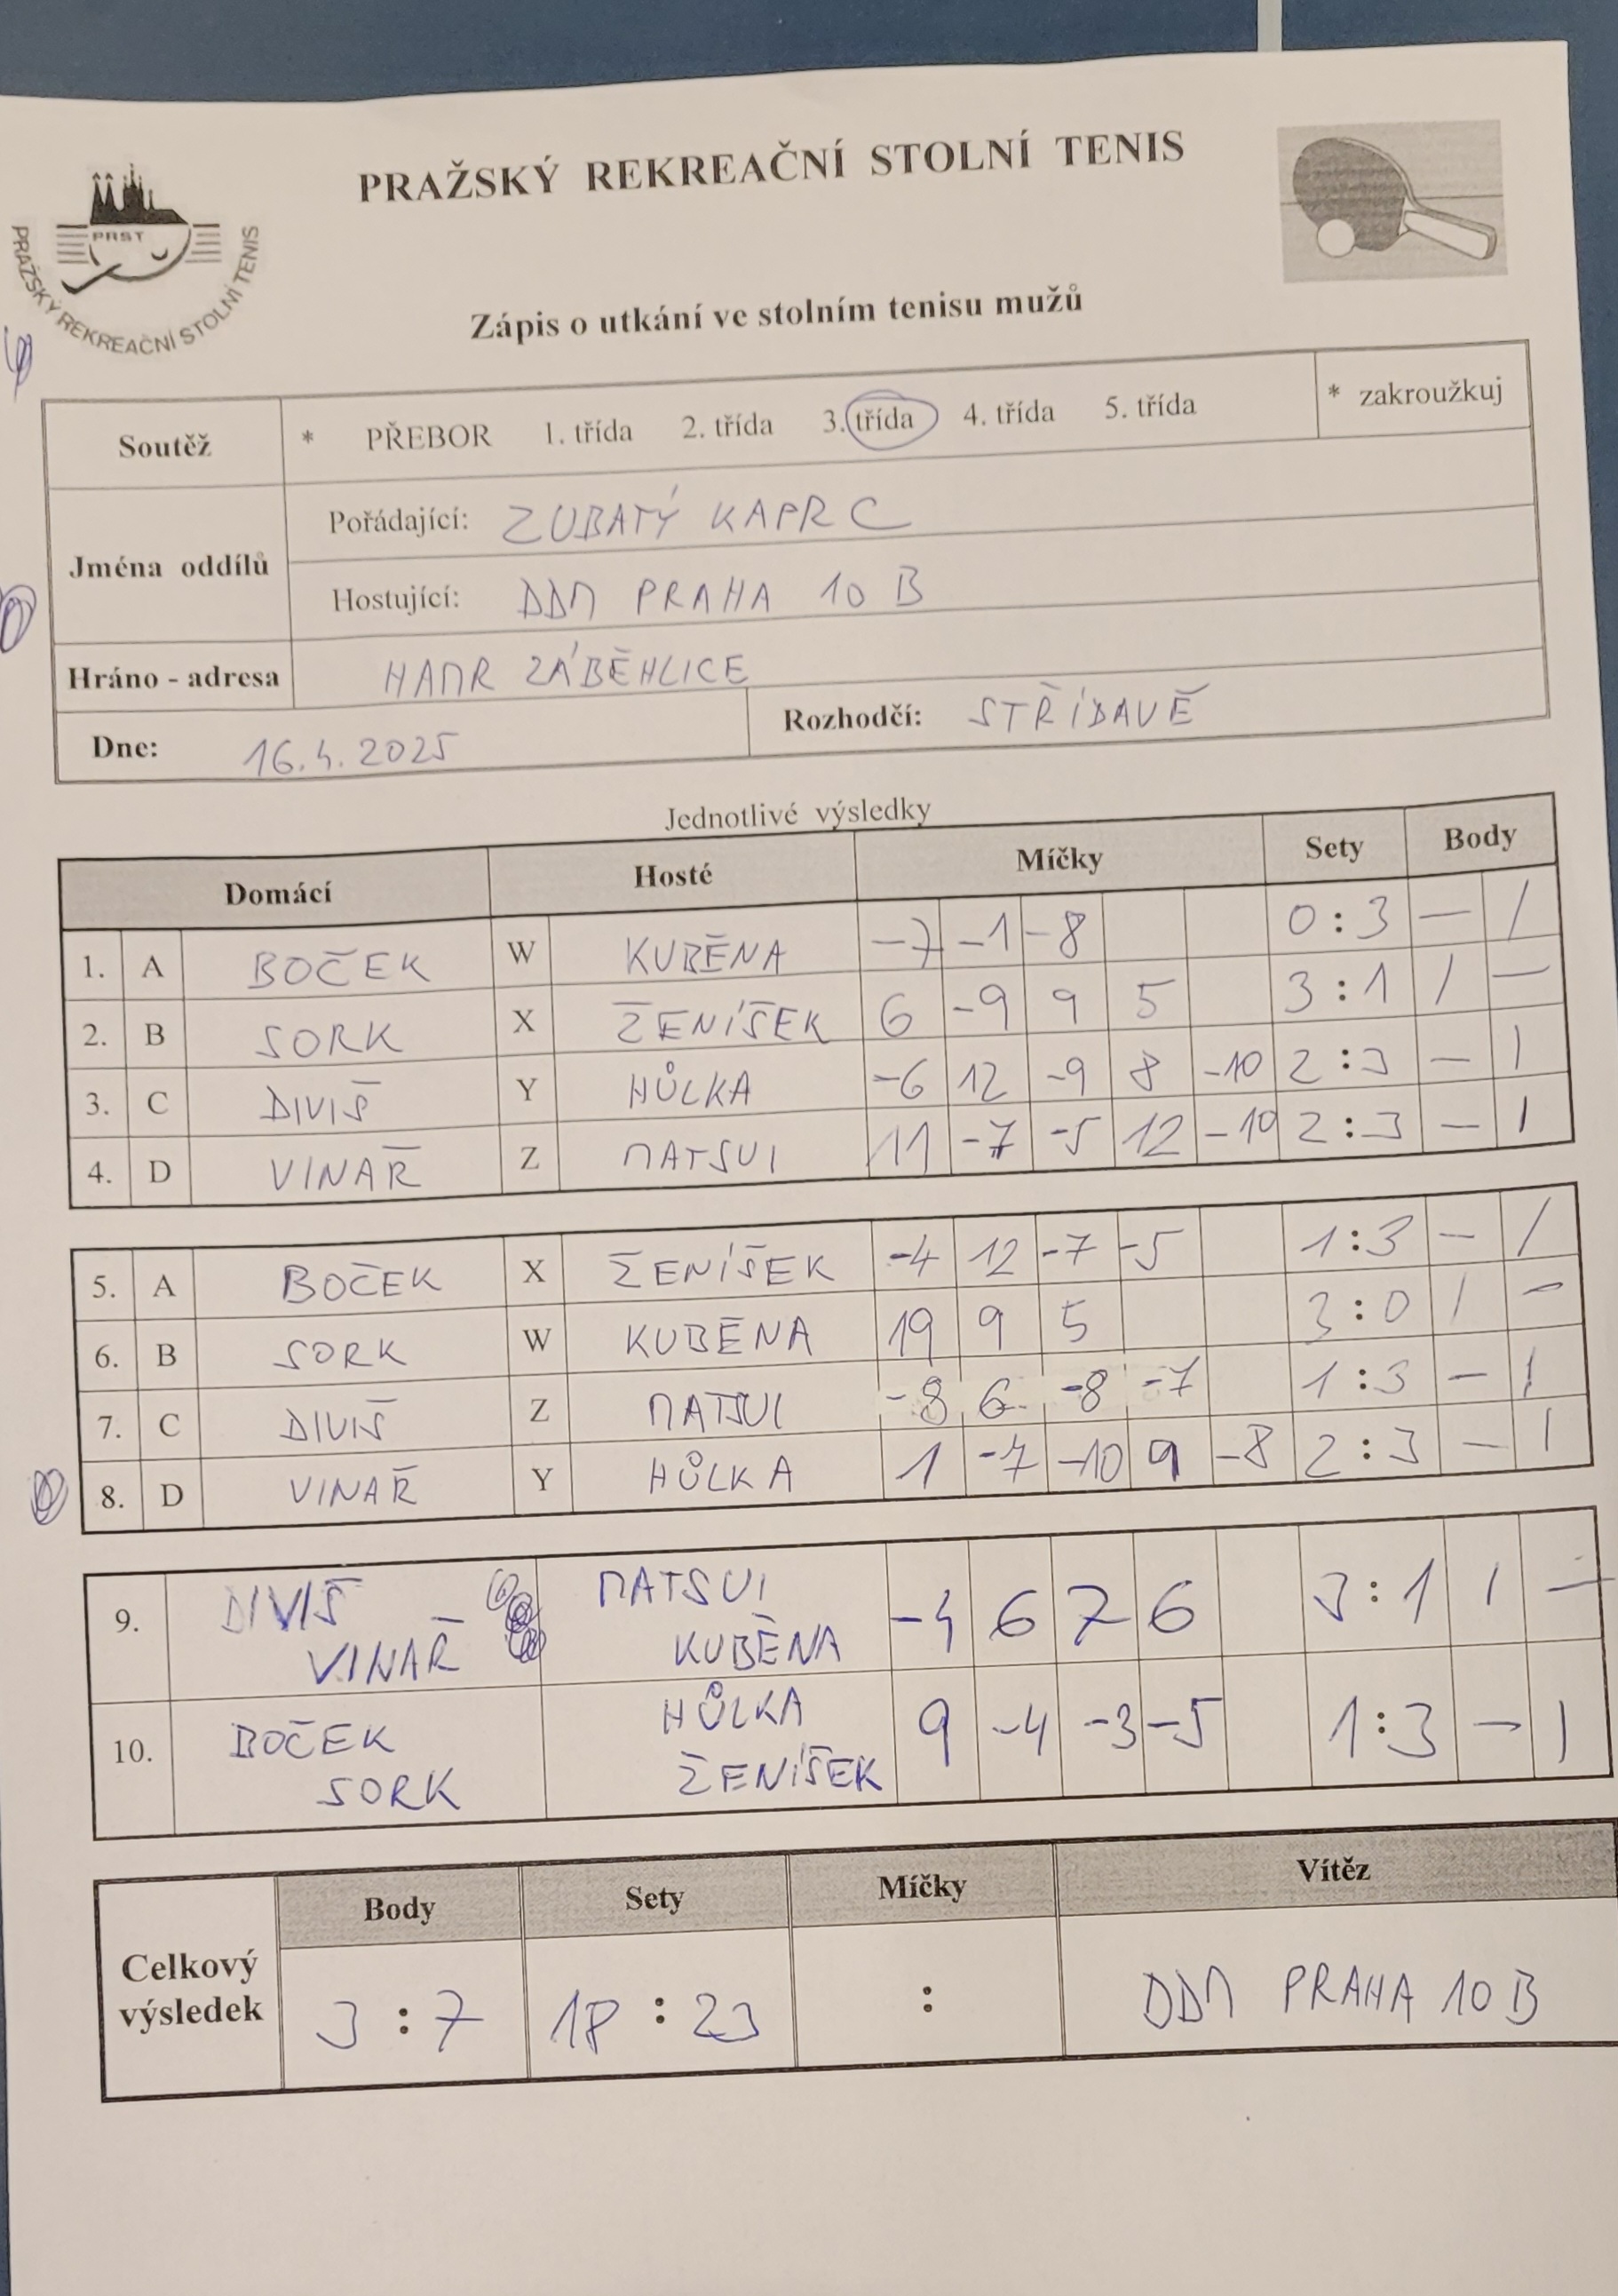 PRAŽSKÝ REKREAČNÍ STOLNÍ TENIS
PRST
PRAŽSKÝ REKREAČNÍ STOLNÍ TENIS
Zápis o utkání ve stolním tenisu mužů
Soutěž * PŘEBOR 1. třída 2. třída 3. třída 4. třída 5. třída * zakroužkuj
Jména oddílů
Pořádající: ZUBATÝ KAPR C
Hostující: DDM PRAHA 10 B
Hráno - adresa HAMR ZÁBĚHLICE
Dne: 16.4.2025 Rozhodčí: STŘÍDAVĚ
Jednotlivé výsledky
Domácí Hosté Míčky Sety Body
1. A BOČEK W KUBĚNA -7 -1 -8 0:3 — /
2. B SORK X ŽENÍŠEK 6 -9 9 5 3:1 / —
3. C DIVIŠ Y HŮLKA -6 12 -9 8 -10 2:3 — |
4. D VINAŘ Z MATSUI 11 -7 -5 12 -10 2:3 — |
5. A BOČEK X ŽENÍŠEK -4 12 -7 -5 1:3 — /
6. B SORK W KUBĚNA 19 9 5 3:0 | —
7. C DIVIŠ Z MATSUI -8 6 -8 -7 1:3 — |
8. D VINAŘ Y HŮLKA 1 -7 -10 9 -8 2:3 — |
9. DIVIŠ MATSUI -4 6 7 6 3:1 | —
VINAŘ KUBĚNA
10. BOČEK HŮLKA 9 -4 -3 -5 1:3 — |
SORK ŽENÍŠEK
Body Sety Míčky Vítěz
Celkový výsledek 3:7 18:23 : DDM PRAHA 10 B